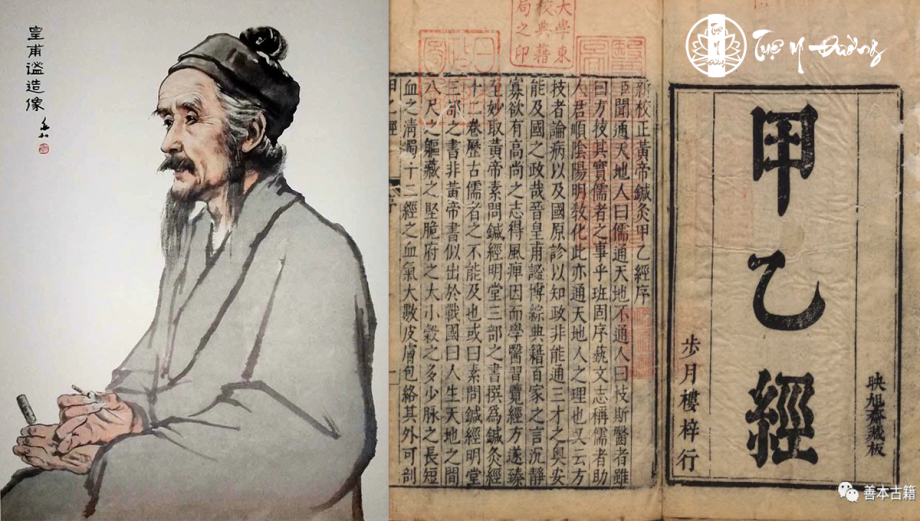 皇甫谧造像
大學東
校典籍
局之印
新校正黃帝鍼灸甲乙經序
臣聞通天地人曰儒通天地不通人曰技斯醫者雖
曰方技其實儒者之事乎班固序蓺文志稱儒者助
人君順陰陽明教化此亦通天地人之理也又云方
技者論病以及國原診以知政非能通三才之奧安
能及國之政哉晉皇甫謐博綜典籍百家之言沉靜
寡欲有高尚之志得風痺因而學醫習覽經方遂臻
至妙取黃帝素問鍼經明堂三部之書撰為鍼灸經
十二卷歷古儒者之不能及也或曰素問鍼經明堂
三部之書非黃帝書似出於戰國曰人生天地之間
八尺之軀藏之堅脆府之大小穀之多少脉之長短
血之清濁十二經之血氣大數皮膚包絡其外可剖
甲乙經 序
Tuệ Y Đường
映旭齋藏板
甲乙經
步月樓梓行
善本古籍